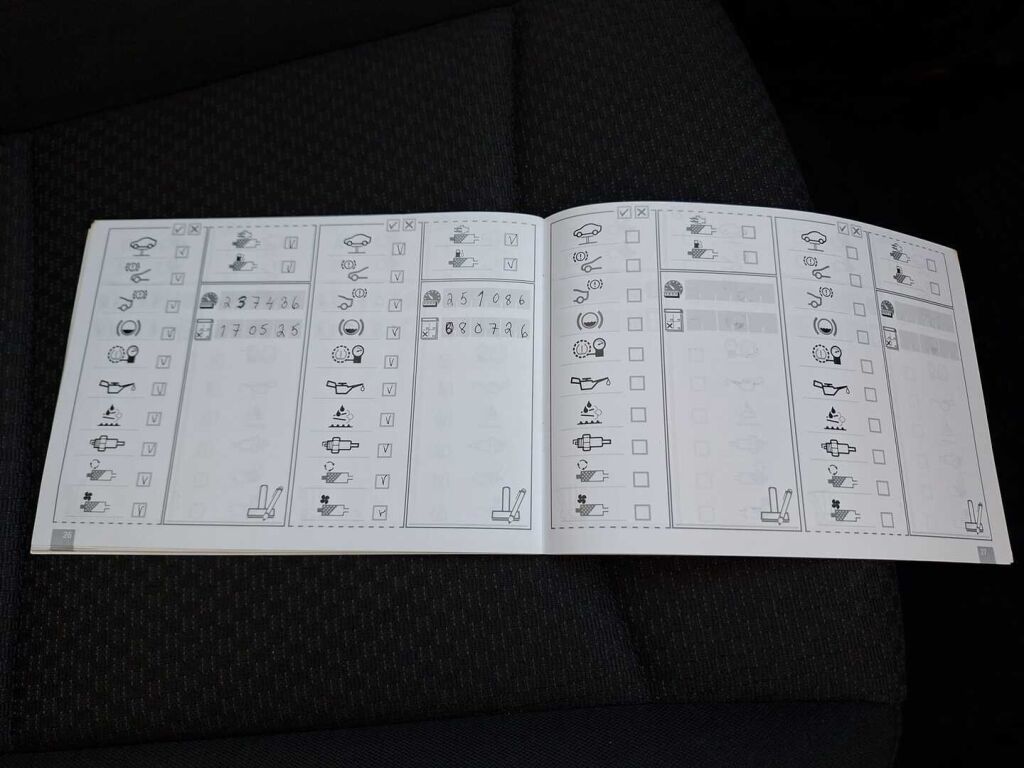 237486
170525
251086
080726
26
27